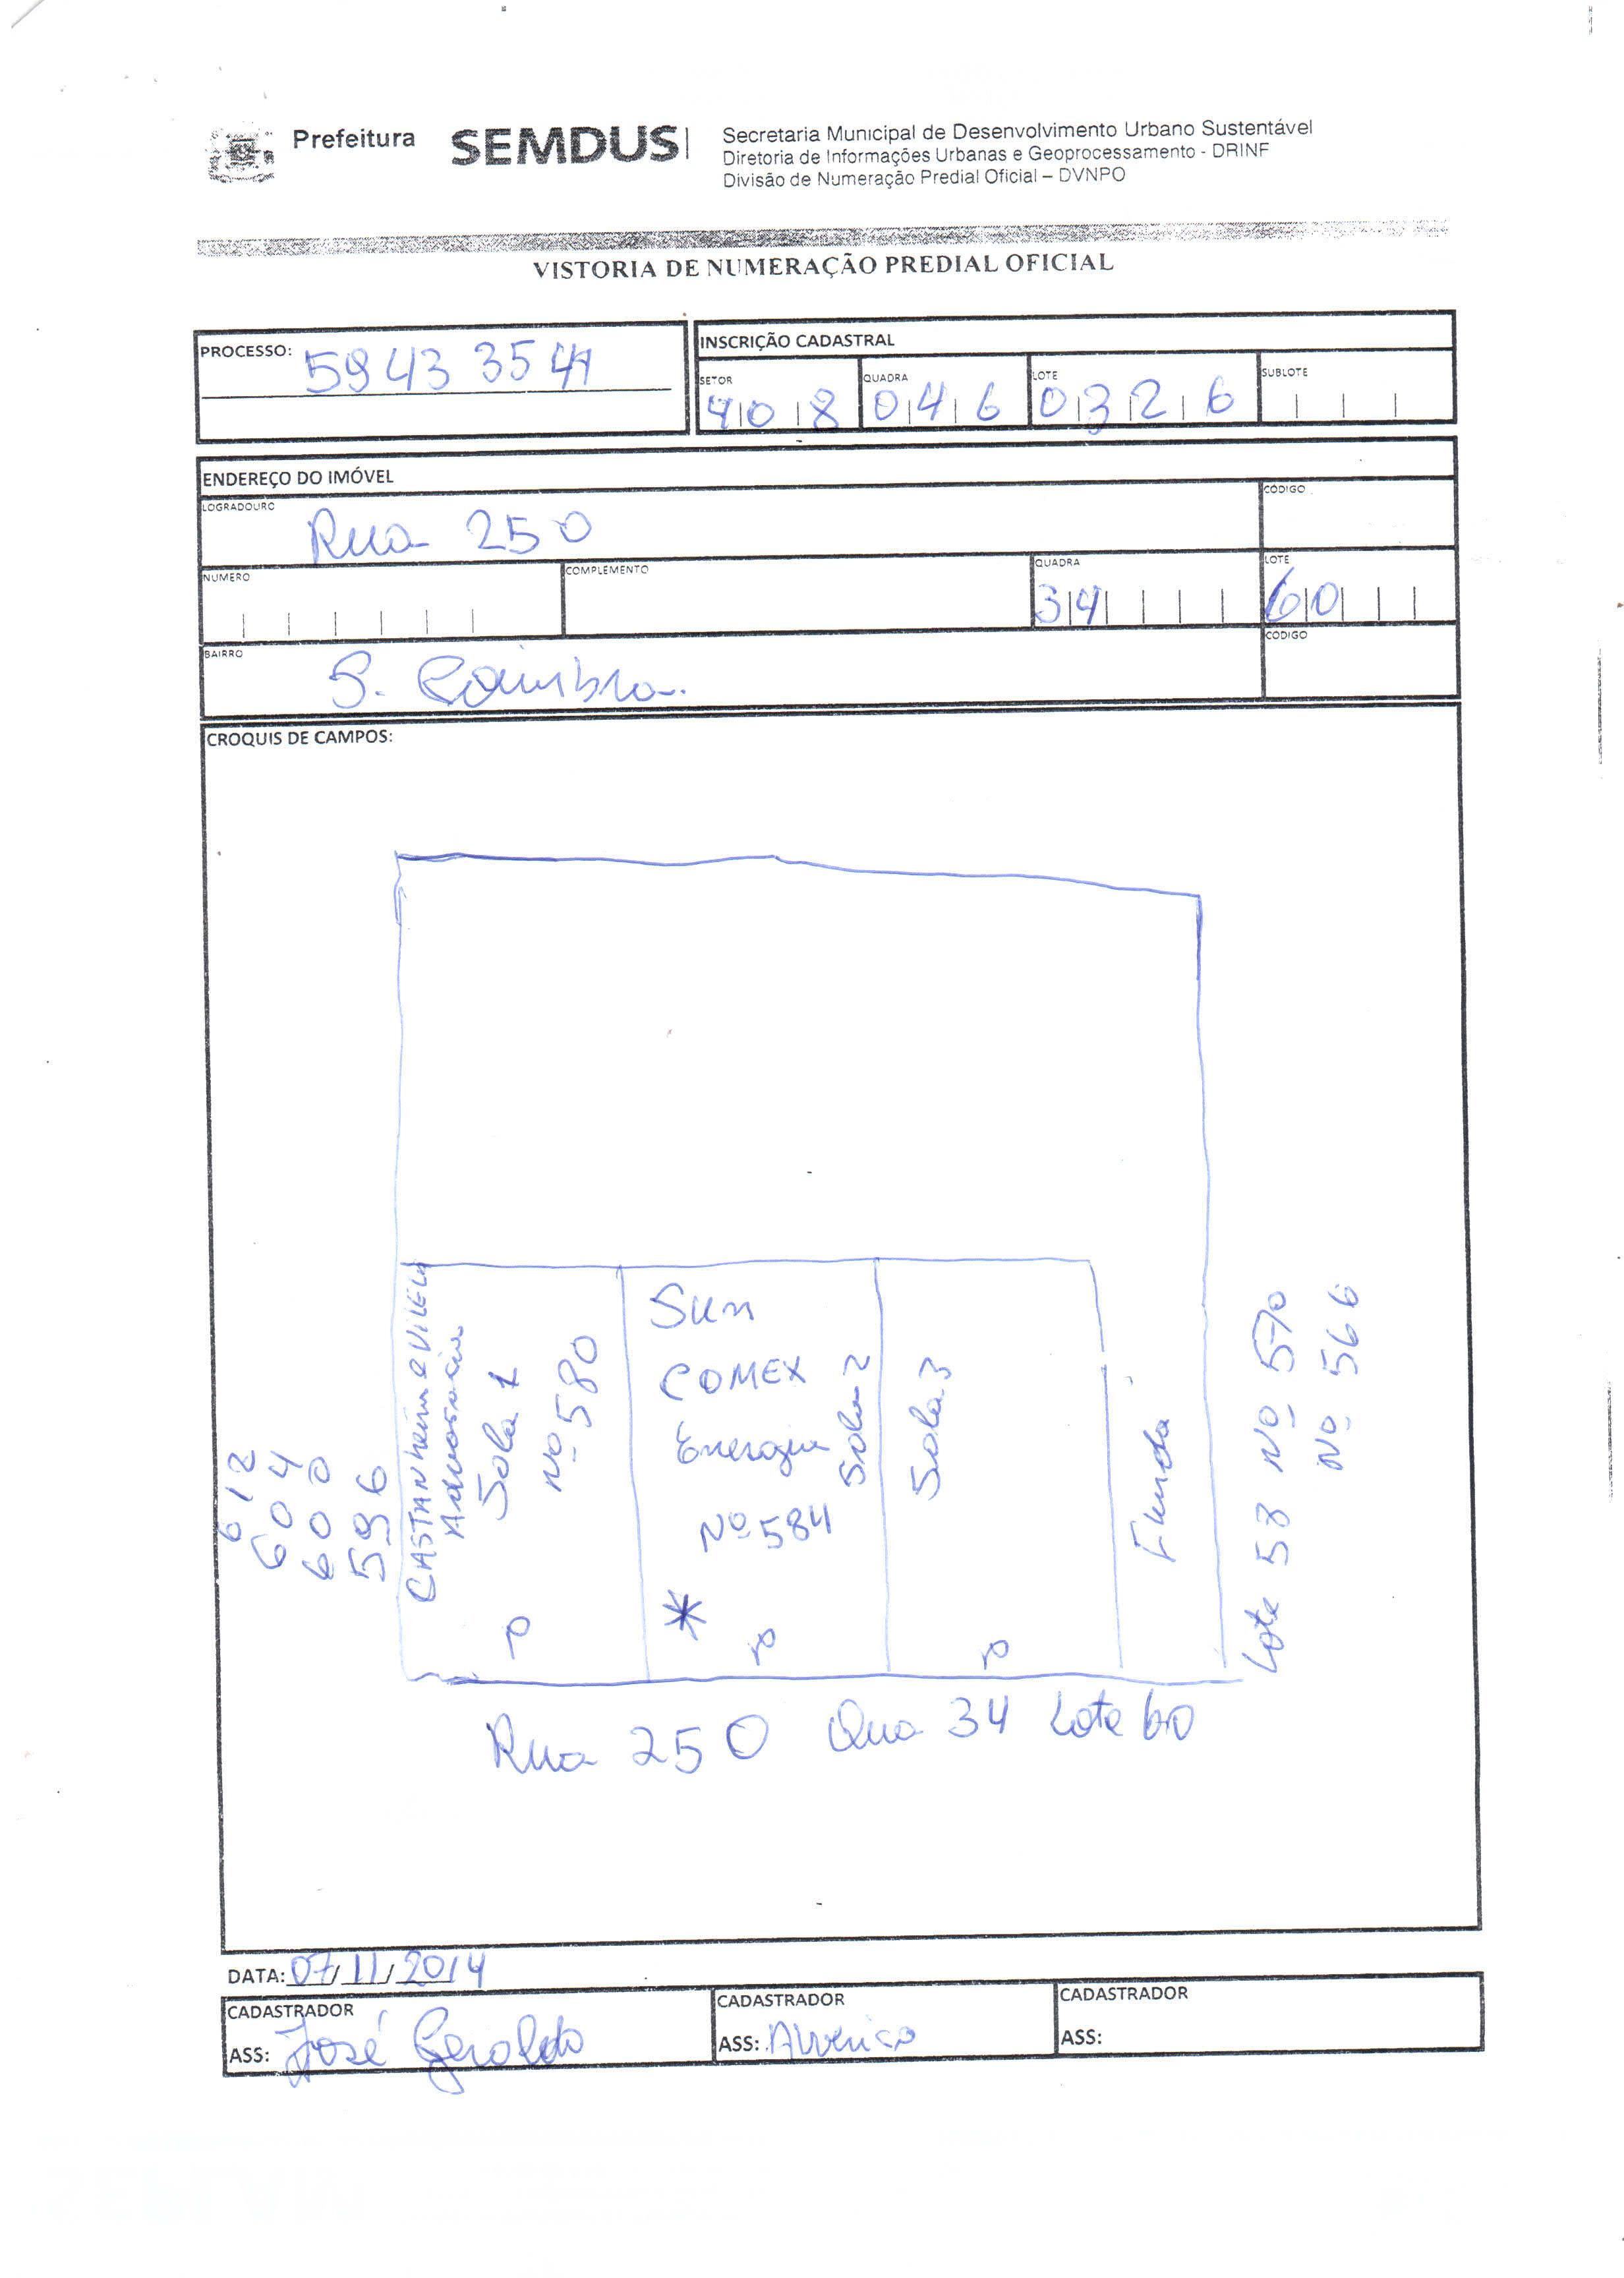 Prefeitura SEMDUS
Secretaria Municipal de Desenvolvimento Urbano Sustentável
Diretoria de Informações Urbanas e Geoprocessamento - DRINF
Divisão de Numeração Predial Oficial – DVNPO
VISTORIA DE NUMERAÇÃO PREDIAL OFICIAL
PROCESSO: 5943 3541
INSCRIÇÃO CADASTRAL
SETOR QUADRA LOTE SUBLOTE
408 046 0326
ENDEREÇO DO IMÓVEL
LOGRADOURO CÓDIGO
Rua 250
NUMERO COMPLEMENTO QUADRA LOTE
34 60
BAIRRO CÓDIGO
S. Coimbra.
CROQUIS DE CAMPOS:
612
604
600
596
CASTANheira e VILELA
Advocacia
Sala 1
Nº 580
Sun
COMEX
Energia
Nº 584
Sala 2
*
Sala 3
Funda
Lote 58 Nº 570
Nº 566
Rua 250 Qua 34 Lote 60
DATA: 07/11/2014
CADASTRADOR CADASTRADOR CADASTRADOR
ASS: José Geraldo ASS: ASS: